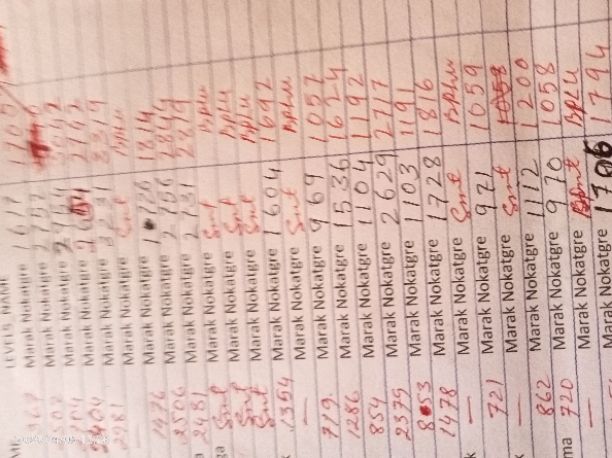 LEVELS NAME
Marak Nokatgre 1617
Marak Nokatgre 2757
Marak Nokatgre
Marak Nokatgre
2981 Marak Nokatgre 3231 3319
— Marak Nokatgre Smt BPLU
1476 Marak Nokatgre 1726 1814
2506 Marak Nokatgre 2756 2844
2481 Marak Nokatgre 2731 2819
Smt Marak Nokatgre Smt BPLU
Smt Marak Nokatgre Smt BPLU
Smt Marak Nokatgre Smt BPLU
1354 Marak Nokatgre 1604 1692
— Marak Nokatgre Smt BPLU
719 Marak Nokatgre 969 1057
1286 Marak Nokatgre 1536 1624
854 Marak Nokatgre 1104 1192
2379 Marak Nokatgre 2629 2717
853 Marak Nokatgre 1103 1191
1478 Marak Nokatgre 1728 1816
— Marak Nokatgre Smt BPLU
721 Marak Nokatgre 971 1059
— Marak Nokatgre Smt
862 Marak Nokatgre 1112 1200
720 Marak Nokatgre 970 1058
— Marak Nokatgre Smt BPLU
Marak Nokatgre 1706 1794